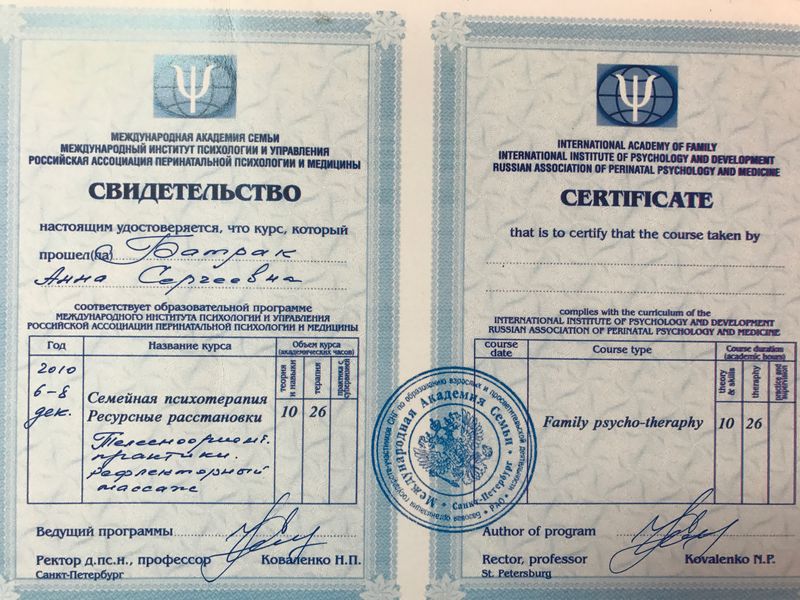 МЕЖДУНАРОДНАЯ АКАДЕМИЯ СЕМЬИ
МЕЖДУНАРОДНЫЙ ИНСТИТУТ ПСИХОЛОГИИ И УПРАВЛЕНИЯ
РОССИЙСКАЯ АССОЦИАЦИЯ ПЕРИНАТАЛЬНОЙ ПСИХОЛОГИИ И МЕДИЦИНЫ
СВИДЕТЕЛЬСТВО
настоящим удостоверяется, что курс, который
прошел(ла) Батрак
Анна Сергеевна
соответствует образовательной программе
МЕЖДУНАРОДНОГО ИНСТИТУТА ПСИХОЛОГИИ И УПРАВЛЕНИЯ
РОССИЙСКОЙ АССОЦИАЦИИ ПЕРИНАТАЛЬНОЙ ПСИХОЛОГИИ И МЕДИЦИНЫ
Год
Название курса
Объем курса
(академических часов)
теория и навыки
терапия
практика с супервизией
2010
6-8
дек.
Семейная психотерапия
Ресурсные расстановки
10 26
Телесноориент.
практики.
рефлекторный
массаж
Ведущий программы
Ректор д.пс.н., профессор Коваленко Н.П.
Санкт-Петербург
INTERNATIONAL ACADEMY OF FAMILY
INTERNATIONAL INSTITUTE OF PSYCHOLOGY AND DEVELOPMENT
RUSSIAN ASSOCIATION OF PERINATAL PSYCHOLOGY AND MEDICINE
CERTIFICATE
that is to certify that the course taken by
complies with the curriculum of the
INTERNATIONAL INSTITUTE OF PSYCHOLOGY AND DEVELOPMENT
RUSSIAN ASSOCIATION OF PERINATAL PSYCHOLOGY AND MEDICINE
course date
Course type
Course duration
(academic hours)
theory & skills
theraphy
practice and supervision
Family psycho-theraphy 10 26
Author of program
Rector, professor Kovalenko N.P.
St. Petersburg
Международная Академия Семьи
Санкт-Петербург
РАО